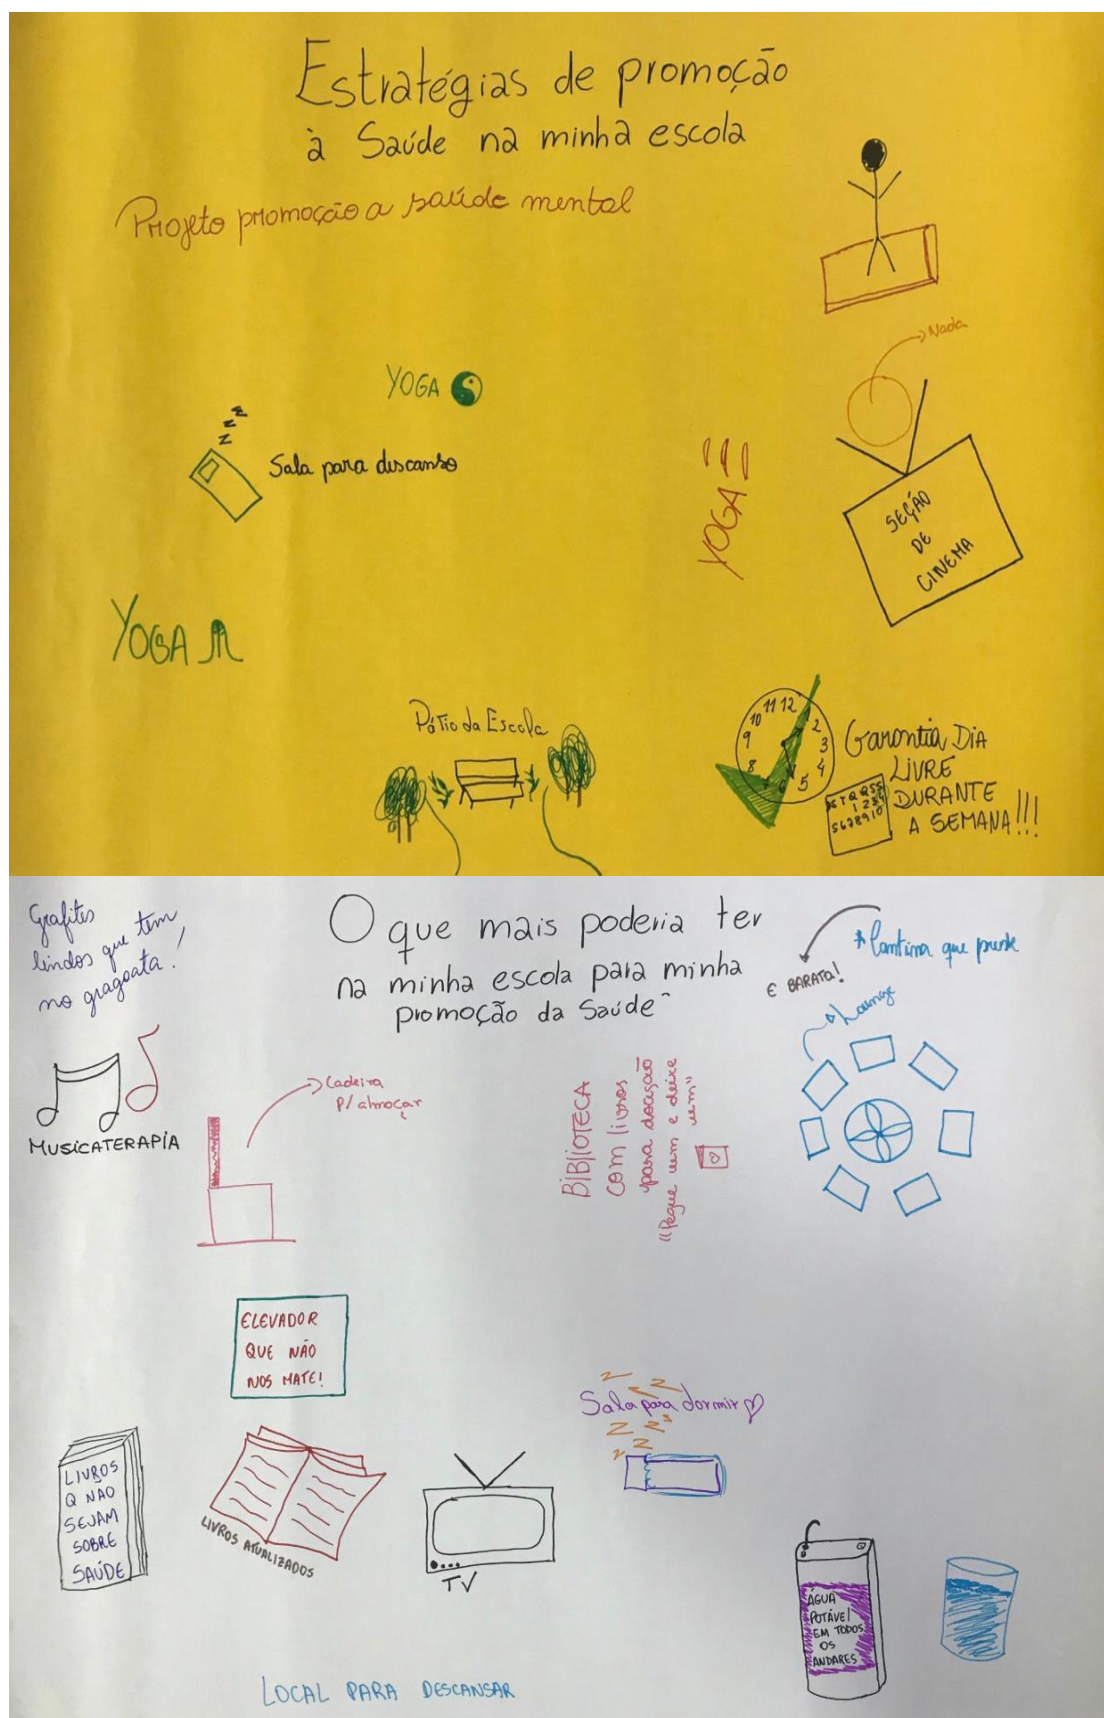 Estratégias de promoção
à Saúde na minha escola
Projeto promoção a saúde mental
Nada
YOGA
zzz
Sala para discanso
YOGA
SEÇÃO
DE
CINEMA
YOGA
Pátio da Escola
11 12
10
9
8
7 6 5
4
3
2
Garantia DIA
LIVRE
DURANTE
A SEMANA!!!
D S T Q Q S S
1 2 3 4
5 6 7 8 9 10
Grafites
lindos que tem
no gragoata!
O que mais poderia ter
na minha escola para minha
promoção da Saúde
* Cantina que preste
E BARATA!
Lounge
MUSICATERAPIA
Cadeira
P/ almoçar
BIBLIOTECA
com livros
para doação
"Pegue um e deixe
um"
ELEVADOR
QUE NÃO
NOS MATE!
Sala para dormir
z z z z z z z
LIVROS
Q NÃO
SEJAM
SOBRE
SAÚDE
LIVROS ATUALIZADOS
TV
ÁGUA
POTÁVEL
EM TODOS
OS
ANDARES
LOCAL PARA DESCANSAR